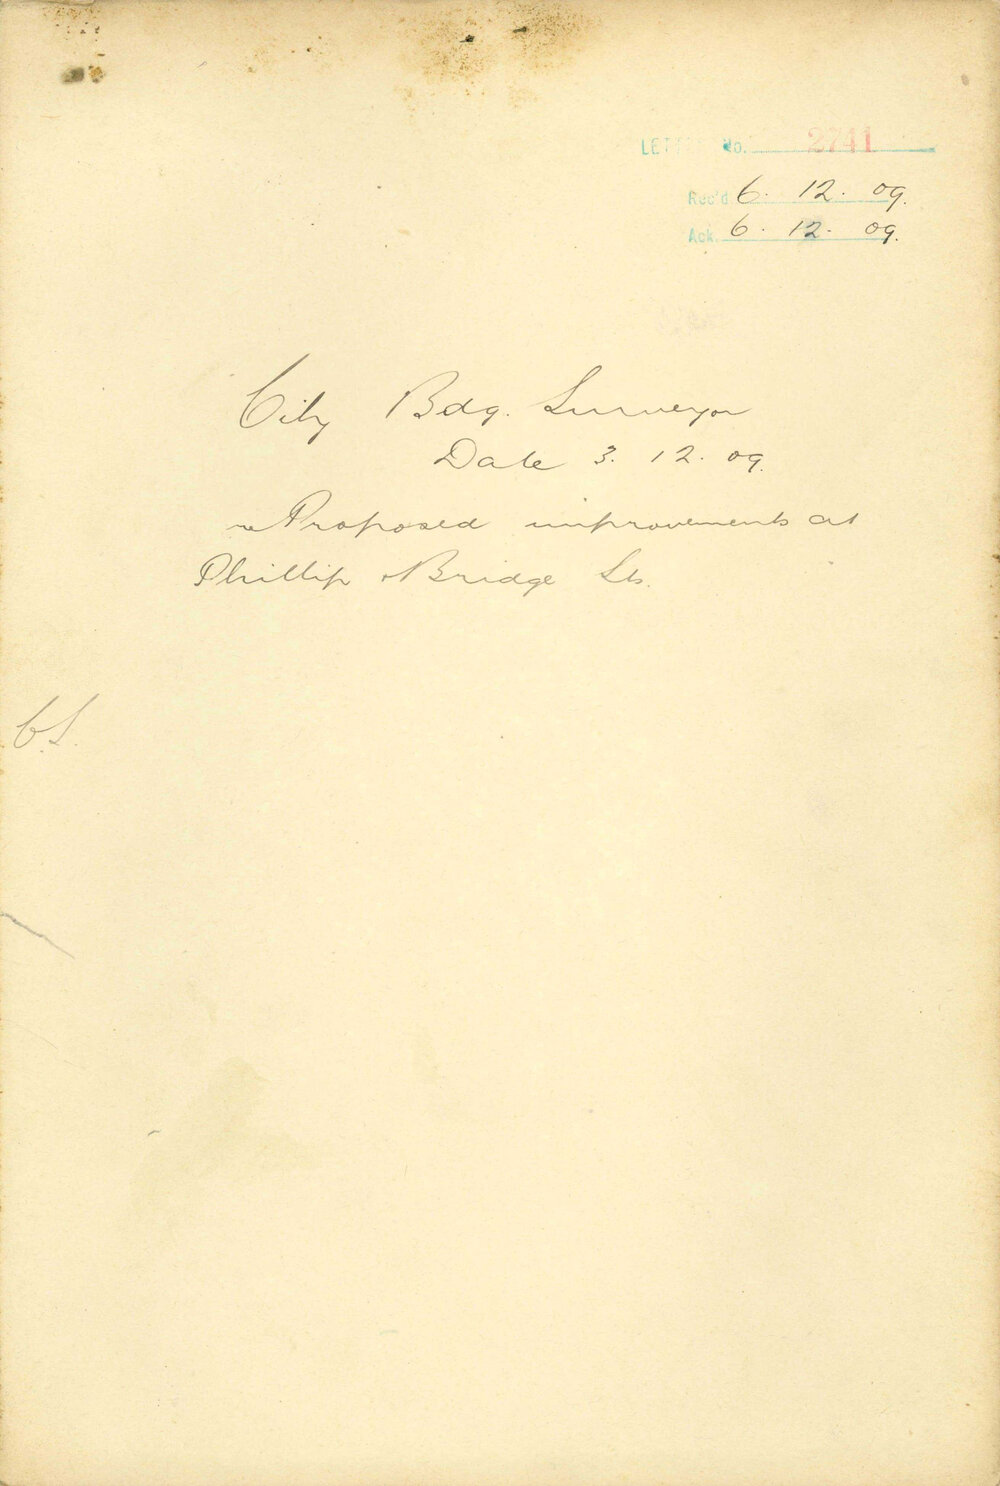 LETTER No. 2741
Rec'd 6. 12. 09.
Ack. 6. 12. 09.
City Bdg. Surveyor
Date 3. 12. 09.
re Proposed improvements at
Phillip & Bridge Sts.
C.S.